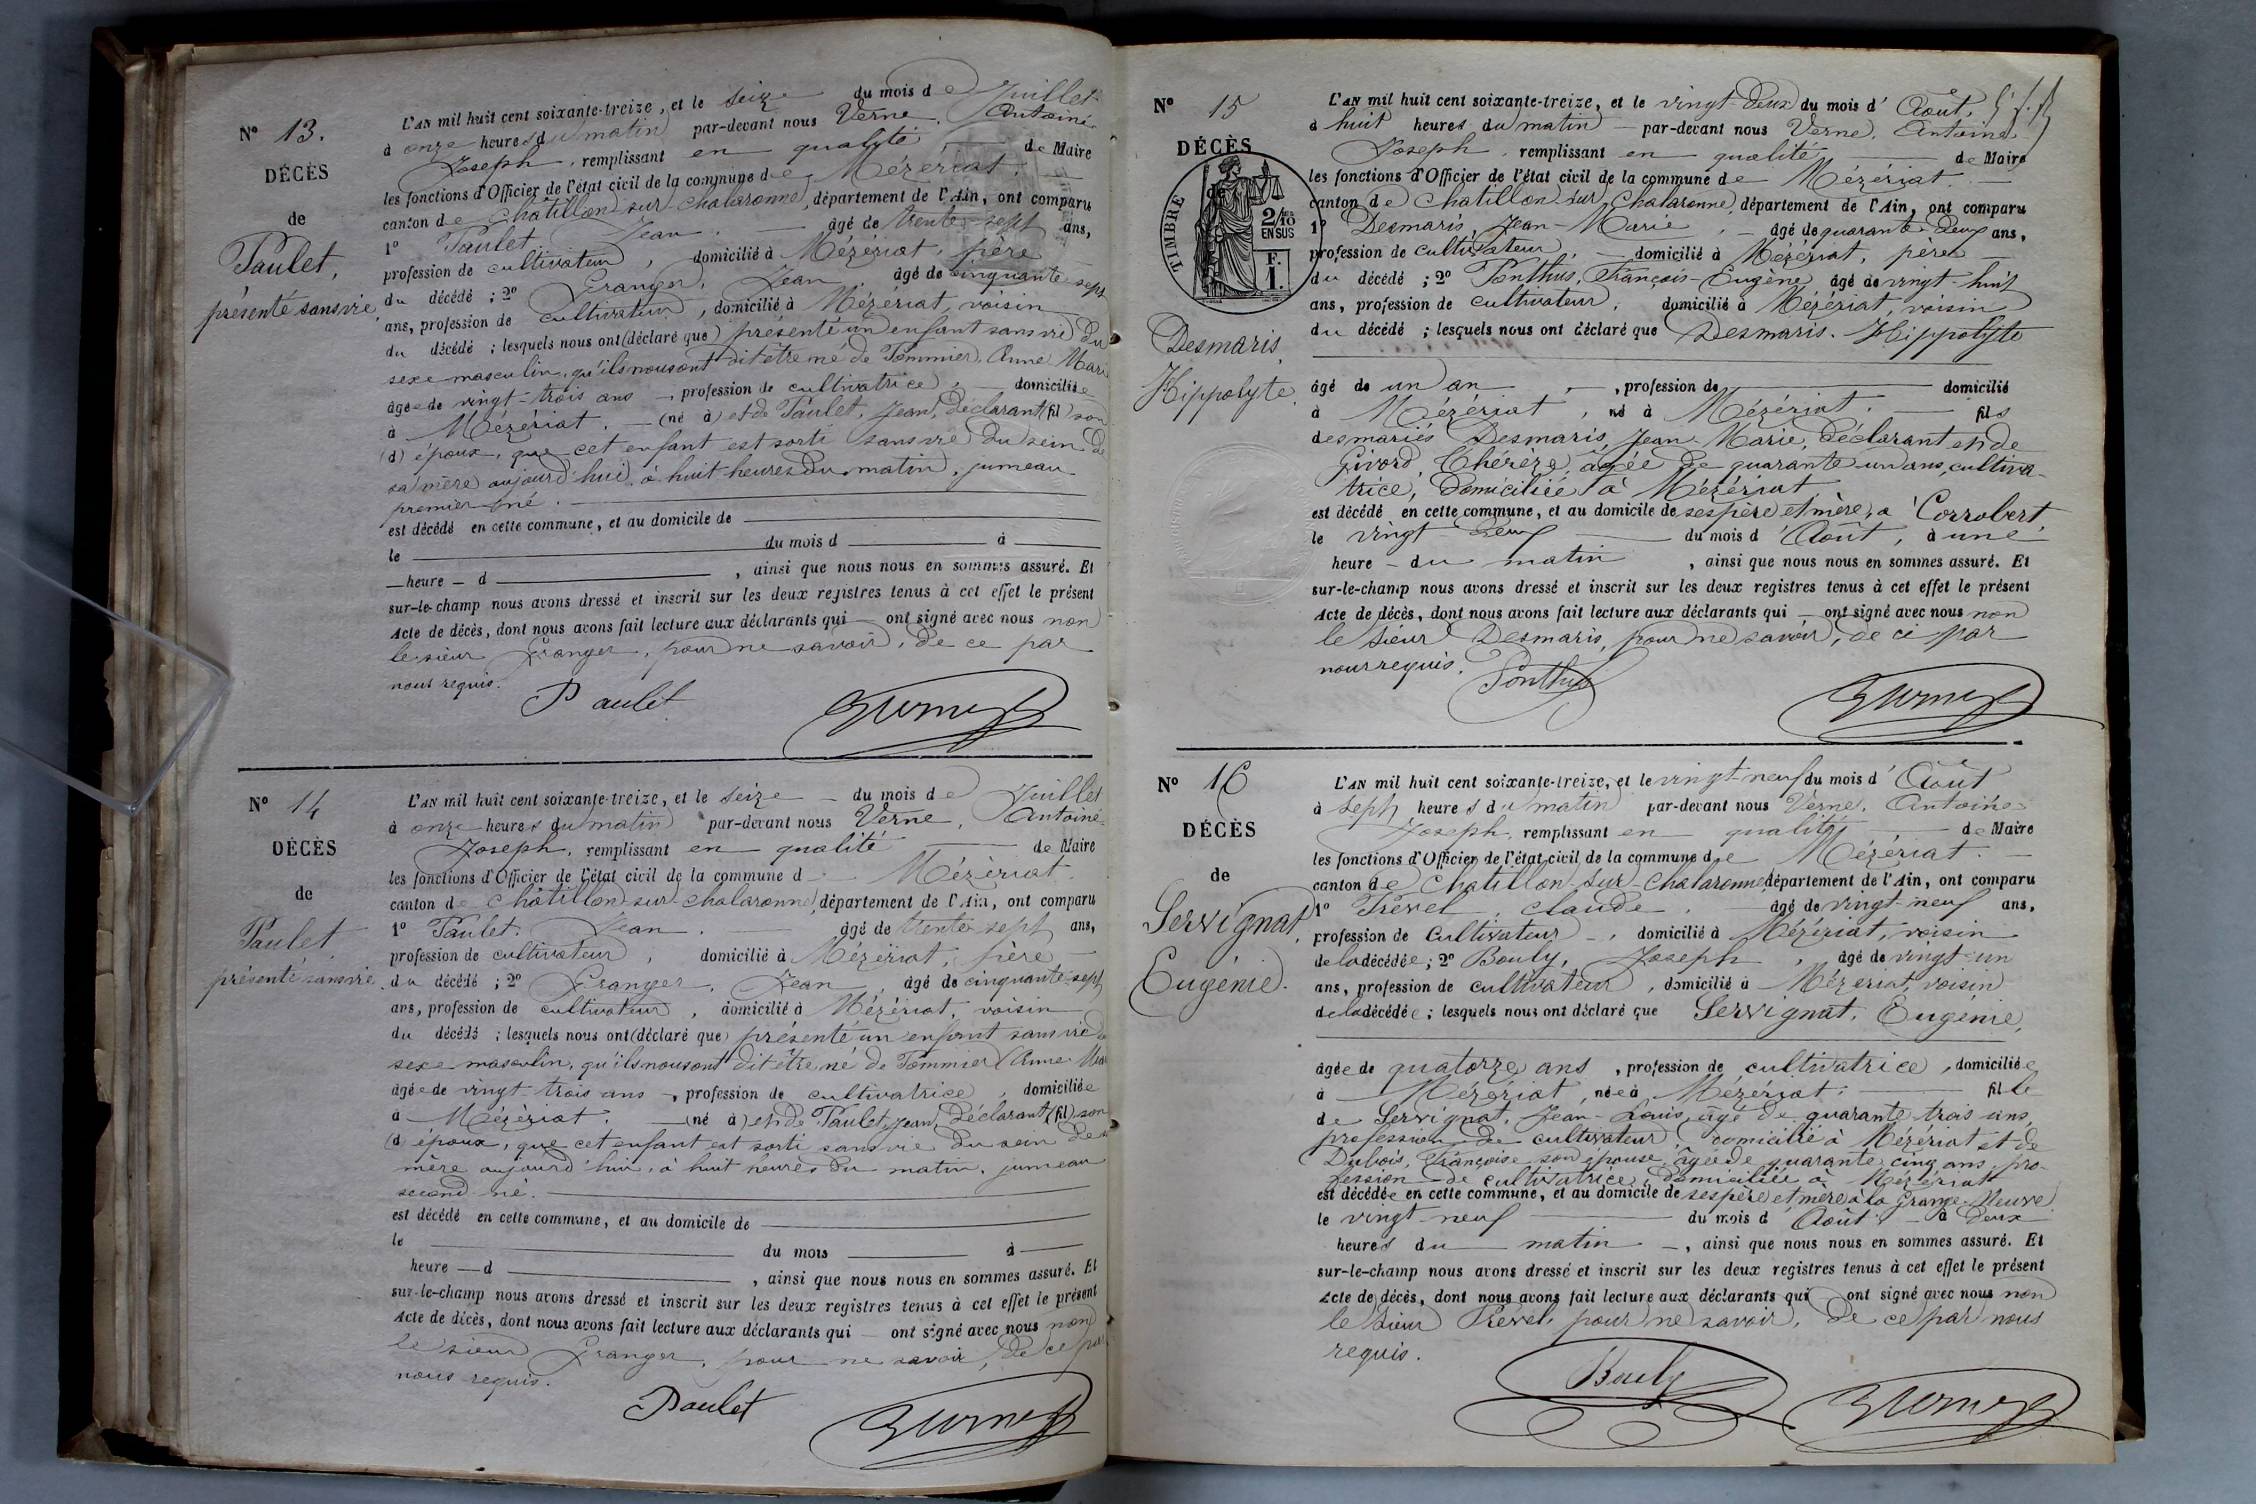 Nº 13.
DÉCÈS
de
Paulet,
présenté sans vie
L'AN mil huit cent soixante-treize, et le seize du mois de Juillet
à onze heures du matin par-devant nous Verne, Antoine
Joseph, remplissant en qualité de Maire
les fonctions d'Officier de l'état civil de la commune de Mézériat.
canton de Châtillon sur Chalaronne, département de l'Ain, ont comparu
1º Paulet Jean, âgé de trente-sept ans,
profession de cultivateur, domicilié à Mézériat, père
du décédé ; 2º Granger, Jean âgé de cinquante sept
ans, profession de cultivateur, domicilié à Mézériat, voisin
du décédé ; lesquels nous ont (déclaré que) présenté un enfant sans vie du
sexe masculin, qu'ils nous ont dit être né de Tommier, Anne Marie
âgée de vingt-trois ans, profession de cultivatrice, domiciliée
à Mézériat. (né à) et de Paulet, Jean, déclarant (fil) son
(d) époux, que cet enfant est sorti sans vie du sein de
sa mère aujourd'hui, à huit heures du matin, jumeau
premier né.
est décédé en cette commune, et au domicile de
le du mois d à
heure d , ainsi que nous nous en sommes assuré. Et
sur-le-champ nous avons dressé et inscrit sur les deux registres tenus à cet effet le présent
Acte de décès, dont nous avons fait lecture aux déclarants qui ont signé avec nous non
le sieur Granger, pour ne savoir, de ce par
nous requis.
Paulet
Verne
Nº 14
DÉCÈS
de
Paulet
présenté sans vie.
L'AN mil huit cent soixante-treize, et le seize du mois de Juillet
à onze heures du matin par-devant nous Verne, Antoine
Joseph, remplissant en qualité de Maire
les fonctions d'Officier de l'état civil de la commune d Mézériat.
canton de Châtillon sur Chalaronne, département de l'Ain, ont comparu
1º Paulet. Jean. âgé de trente sept ans,
profession de cultivateur, domicilié à Mézériat, père
du décédé ; 2º Granger, Jean, âgé de cinquante-sept
ans, profession de cultivateur, domicilié à Mézériat, voisin
du décédé ; lesquels nous ont (déclaré que) présenté un enfant sans vie du
sexe masculin, qu'ils nous ont dit être né de Tommier Anne Marie
âgée de vingt-trois ans, profession de cultivatrice, domiciliée
à Mézériat. (né à) et de Paulet, Jean, déclarant (fil) son
(d) époux, que cet enfant est sorti sans vie du sein de sa
mère aujourd'hui, à huit heures du matin, jumeau
second né.
est décédé en cette commune, et au domicile de
le du mois à
heure d , ainsi que nous nous en sommes assuré. Et
sur-le-champ nous avons dressé et inscrit sur les deux registres tenus à cet effet le présent
Acte de décès, dont nous avons fait lecture aux déclarants qui ont signé avec nous non
le sieur Granger, pour ne savoir, de ce par
nous requis.
Paulet
Verne
Nº 15
DÉCÈS
de
TIMBRE
2/10 EN SUS
F. 1.
Desmaris,
Hippolyte.
L'AN mil huit cent soixante-treize, et le vingt-deux du mois d'Août,
à huit heures du matin par-devant nous Verne, Antoine
Joseph, remplissant en qualité de Maire
les fonctions d'Officier de l'état civil de la commune de Mézériat.
canton de Chatillon sur Chalaronne, département de l'Ain, ont comparu
1º Desmaris, Jean-Marie, âgé de quarante deux ans,
profession de cultivateur, domicilié à Mézériat, père
du décédé ; 2º Ponthus, François-Eugène âgé de vingt-huit
ans, profession de cultivateur, domicilié à Mézériat, voisin
du décédé ; lesquels nous ont déclaré que Desmaris. Hippolyte
âgé de un an, profession de domicilié
à Mézériat, né à Mézériat. fils
des mariés Desmaris, Jean-Marie, déclarant et de
Givord, Thérèze, âgée de quarante un ans, cultiva-
trice, domiciliée à Mézériat
est décédé en cette commune, et au domicile de ses père et mère, à Corrobert,
le vingt deux du mois d'Août, à une
heure du matin, ainsi que nous nous en sommes assuré. Et
sur-le-champ nous avons dressé et inscrit sur les deux registres tenus à cet effet le présent
Acte de décès, dont nous avons fait lecture aux déclarants qui ont signé avec nous non
le sieur Desmaris, pour ne savoir, de ce par
nous requis.
Ponthus
Verne
Nº 16
DÉCÈS
de
Servignat,
Eugénie.
L'AN mil huit cent soixante-treize, et le vingt-neuf du mois d'Août
à sept heures du matin par-devant nous Verne, Antoine
Joseph, remplissant en qualité de Maire
les fonctions d'Officier de l'état civil de la commune de Mézériat.
canton de Chatillon-sur-Chalaronne, département de l'Ain, ont comparu
1º Prével, Claude, âgé de vingt-neuf ans,
profession de Cultivateur, domicilié à Mézériat, voisin
de la décédée ; 2º Bouly, Joseph, âgé de vingt-un
ans, profession de cultivateur, domicilié à Mézériat, voisin
de la décédée ; lesquels nous ont déclaré que Servignat, Eugénie,
âgée de quatorze ans, profession de cultivatrice, domiciliée
à Mézériat, née à Mézériat; fille
de Servignat, Jean-Louis, âgé de quarante trois ans,
profession de cultivateur, domicilié à Mézériat et de
Dubois, Françoise son épouse, âgée de quarante cinq ans, pro-
fession de cultivatrice, domiciliée à Mézériat
est décédée en cette commune, et au domicile de ses père et mère à la Grange-Neuve
le vingt neuf du mois d'Août à deux
heures du matin, ainsi que nous nous en sommes assuré. Et
sur-le-champ nous avons dressé et inscrit sur les deux registres tenus à cet effet le présent
Acte de décès, dont nous avons fait lecture aux déclarants qui ont signé avec nous non
le sieur Prével, pour ne savoir, de ce par nous
requis.
Bouly
Verne